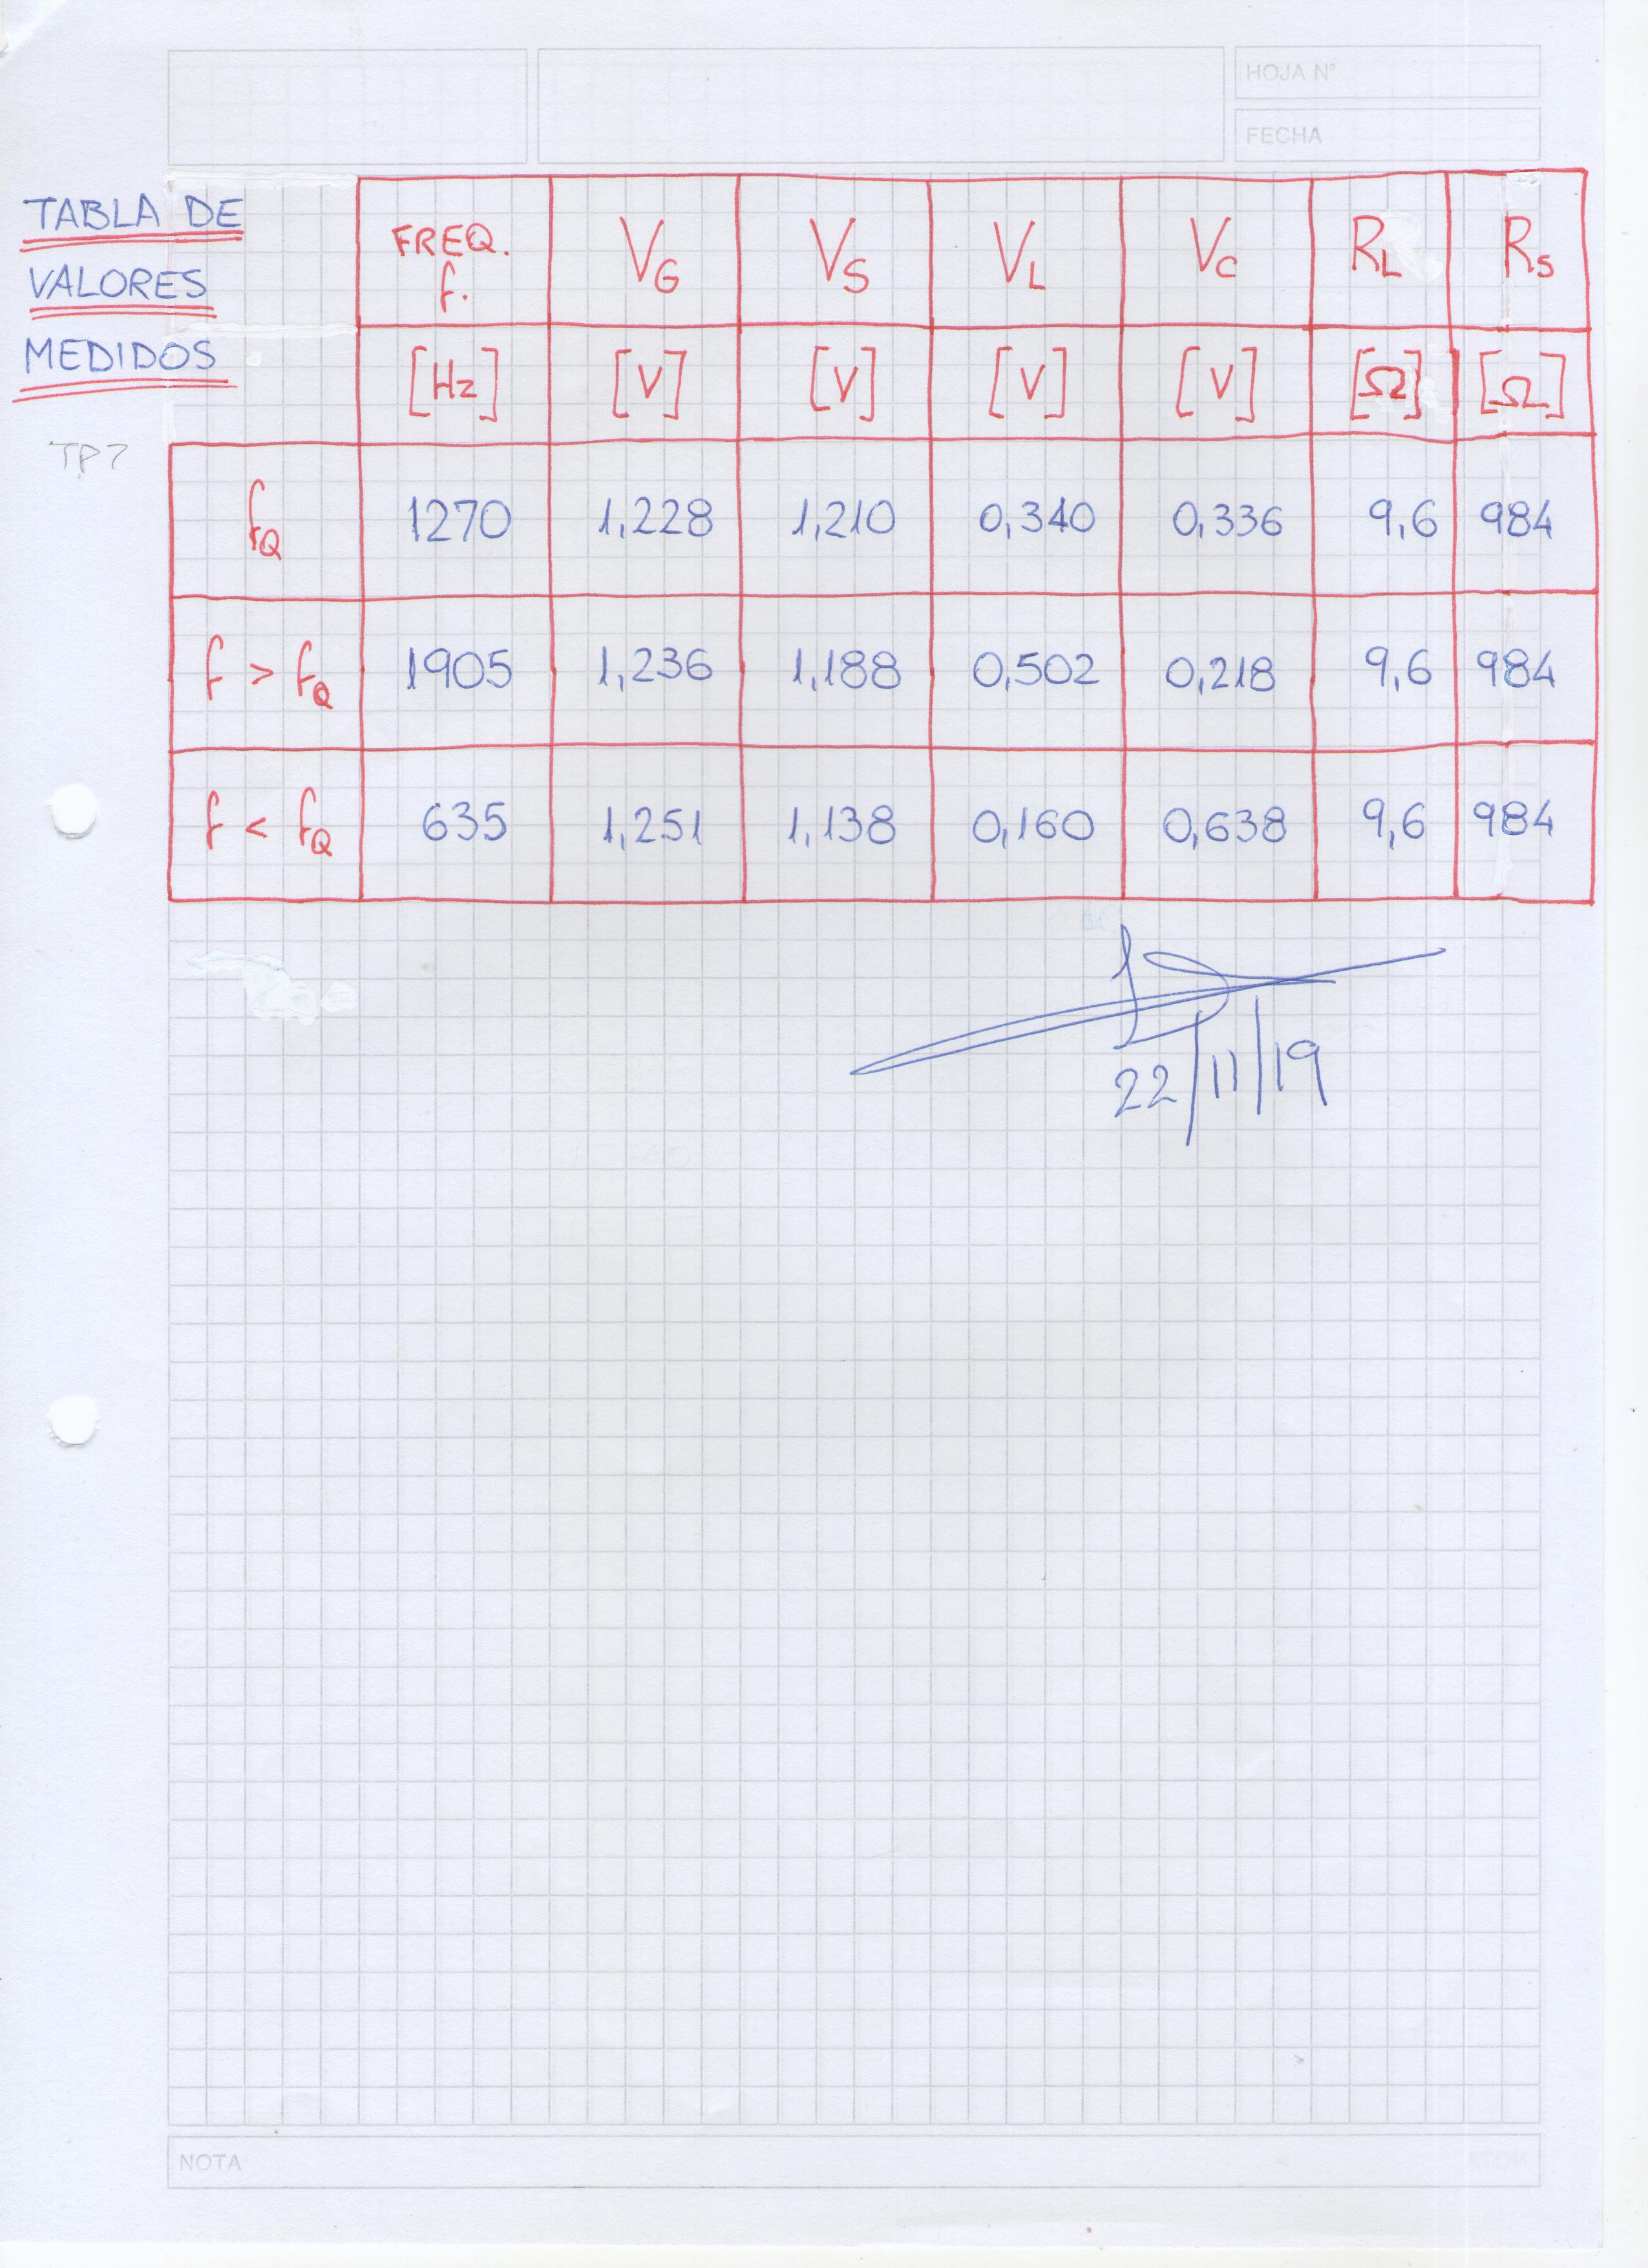 HOJA N°
FECHA
TABLA DE
VALORES
MEDIDOS
TP7
FREQ. f. VG VS VL VC RL RS
[Hz] [V] [V] [V] [V] [Ω] [Ω]
fQ 1270 1,228 1,210 0,340 0,336 9,6 984
f > fQ 1905 1,236 1,188 0,502 0,218 9,6 984
f < fQ 635 1,251 1,138 0,160 0,638 9,6 984
22/11/19
NOTA